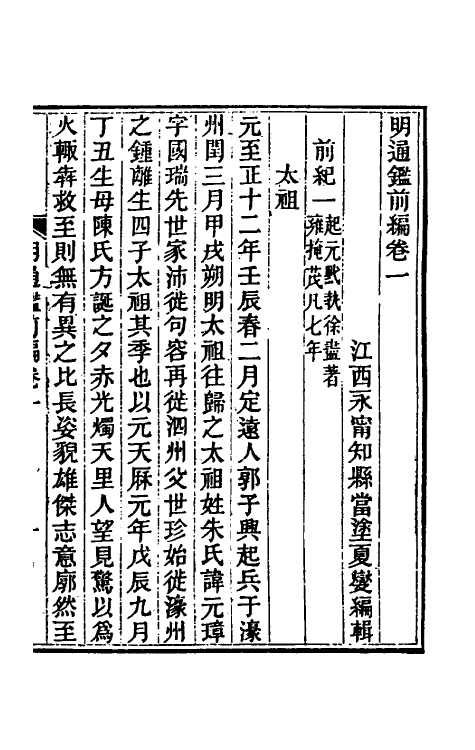 明通鑑前編卷一
江西永甯知縣當塗夏燮編輯
前紀一起元黓執徐盡著
雍掩茂凡七年
太祖
元至正十二年壬辰春二月定遠人郭子興起兵于濠
州閏三月甲戌朔明太祖往歸之太祖姓朱氏諱元璋
字國瑞先世家沛徙句容再徙泗州父世珍始徙濠州
之鍾離生四子太祖其季也以元天厤元年戊辰九月
丁丑生母陳氏方誕之夕赤光燭天里人望見驚以爲
火輒奔救至則無有異之比長姿貌雄傑志意廓然至
明通鑑前編卷一